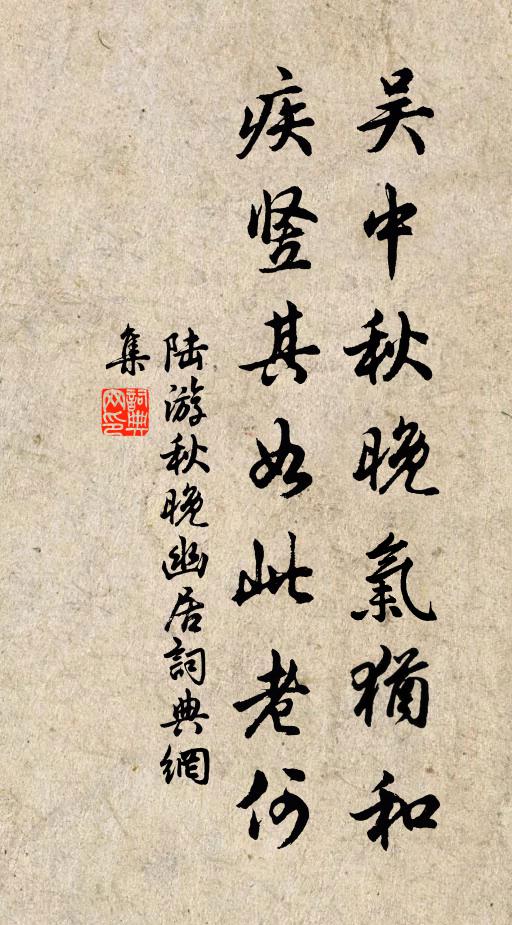 吳中秋晚氣猶和
疾豎其如此老何
陸游秋晚幽居詞典網
集
詞典網印